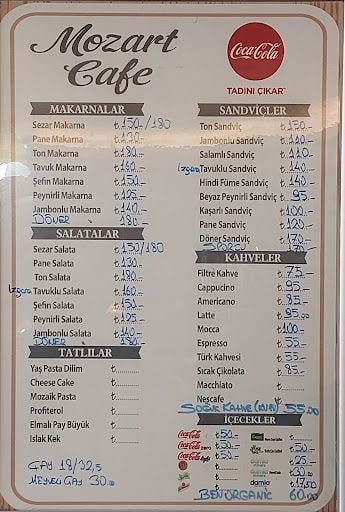 Mozart
Cafe
Coca-Cola
TADINI ÇIKAR
MAKARNALAR
Sezar Makarna ₺150/180
Pane Makarna ₺130.-
Ton Makarna ₺180.-
Tavuk Makarna ₺160.-
Şefin Makarna ₺150.-
Peynirli Makarna ₺125.-
Jambonlu Makarna ₺140.-
DÖNER 180.-
SALATALAR
Sezar Salata ₺150/180
Pane Salata ₺130.-
Ton Salata ₺180.-
Izgara Tavuklu Salata ₺160.-
Şefin Salata ₺150.-
Peynirli Salata ₺125.-
Jambonlu Salata ₺140.-
DÖNER 180.-
TATLILAR
Yaş Pasta Dilim ₺
Cheese Cake ₺
Mozaik Pasta ₺
Profiterol ₺
Elmalı Pay Büyük ₺
Islak Kek ₺
ÇAY 18/32,5
MEYVELİ ÇAY 30.00
SANDVİÇLER
Ton Sandviç ₺150.-
Jambonlu Sandviç ₺110.-
Salamlı Sandviç ₺110.-
Izgara Tavuklu Sandviç ₺140.-
Hindi Füme Sandviç ₺140.-
Beyaz Peynirli Sandviç ₺95.-
Kaşarlı Sandviç ₺100.-
Pane Sandviç ₺120.-
Döner Sandviç ₺170.-
KAHVELER
Filtre Kahve ₺75.-
Cappucino ₺95.-
Americano ₺85.-
Latte ₺95.00
Mocca ₺100.-
Espresso ₺55.-
Türk Kahvesi ₺55.-
Sıcak Çikolata ₺85.-
Macchiato ₺
Nescafe ₺
SOĞUK KAHVE 55.00
İÇECEKLER
Coca-Cola ₺50.-
Coca-Cola zero ₺50.-
Coca-Cola light ₺50.-
₺50.-
₺25.-
₺30.00
damla ₺17.50
BEN ORGANIC 60.00